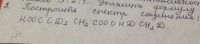 Укажите формулу
2. Построить спектр соединения:
HOOC CD₃ CH₃ COO CH D CH₂ D.